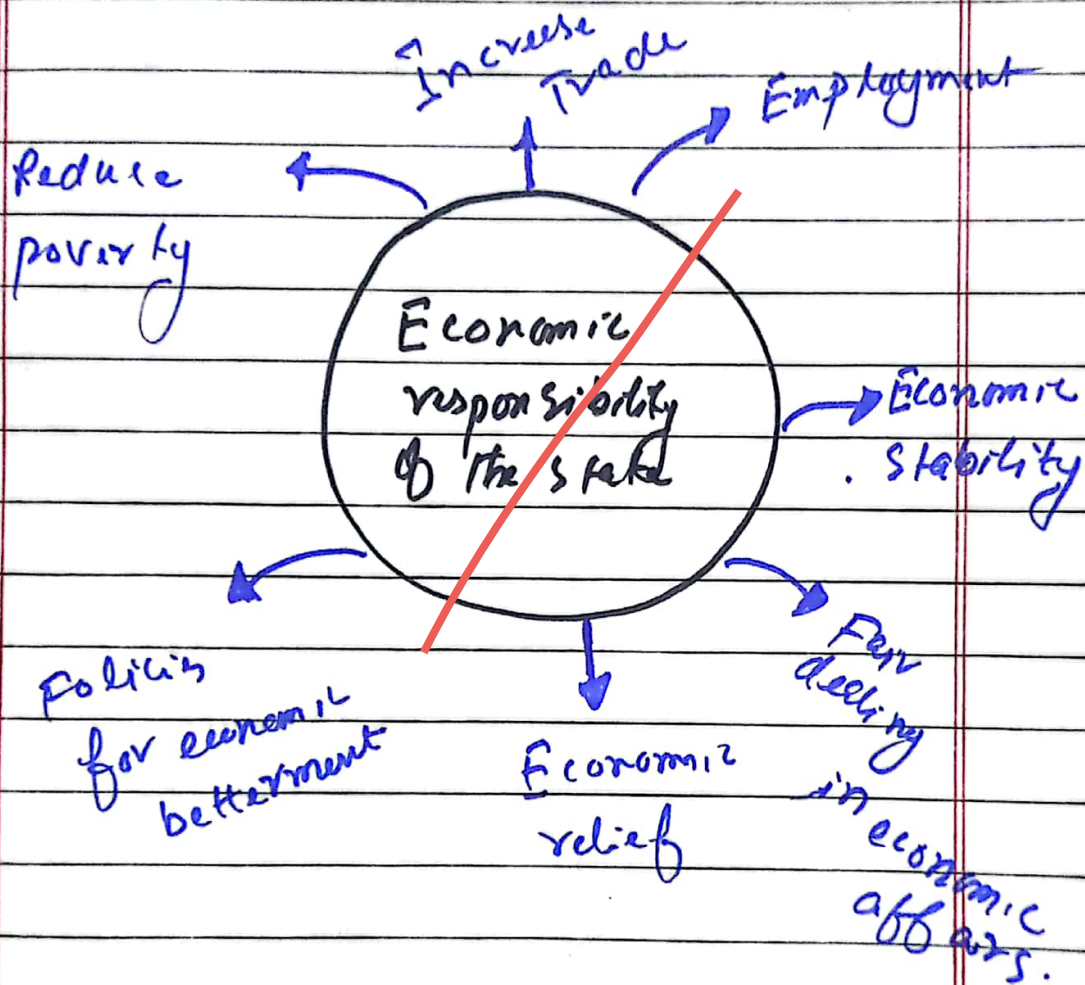 Increese
Trade
Employment
Reduce
poverty
Economic
responsibility
of the state
Economic
stability
Folicies
for economic
betterment
Economic
relief
Fair
deeling
in economic
affairs.